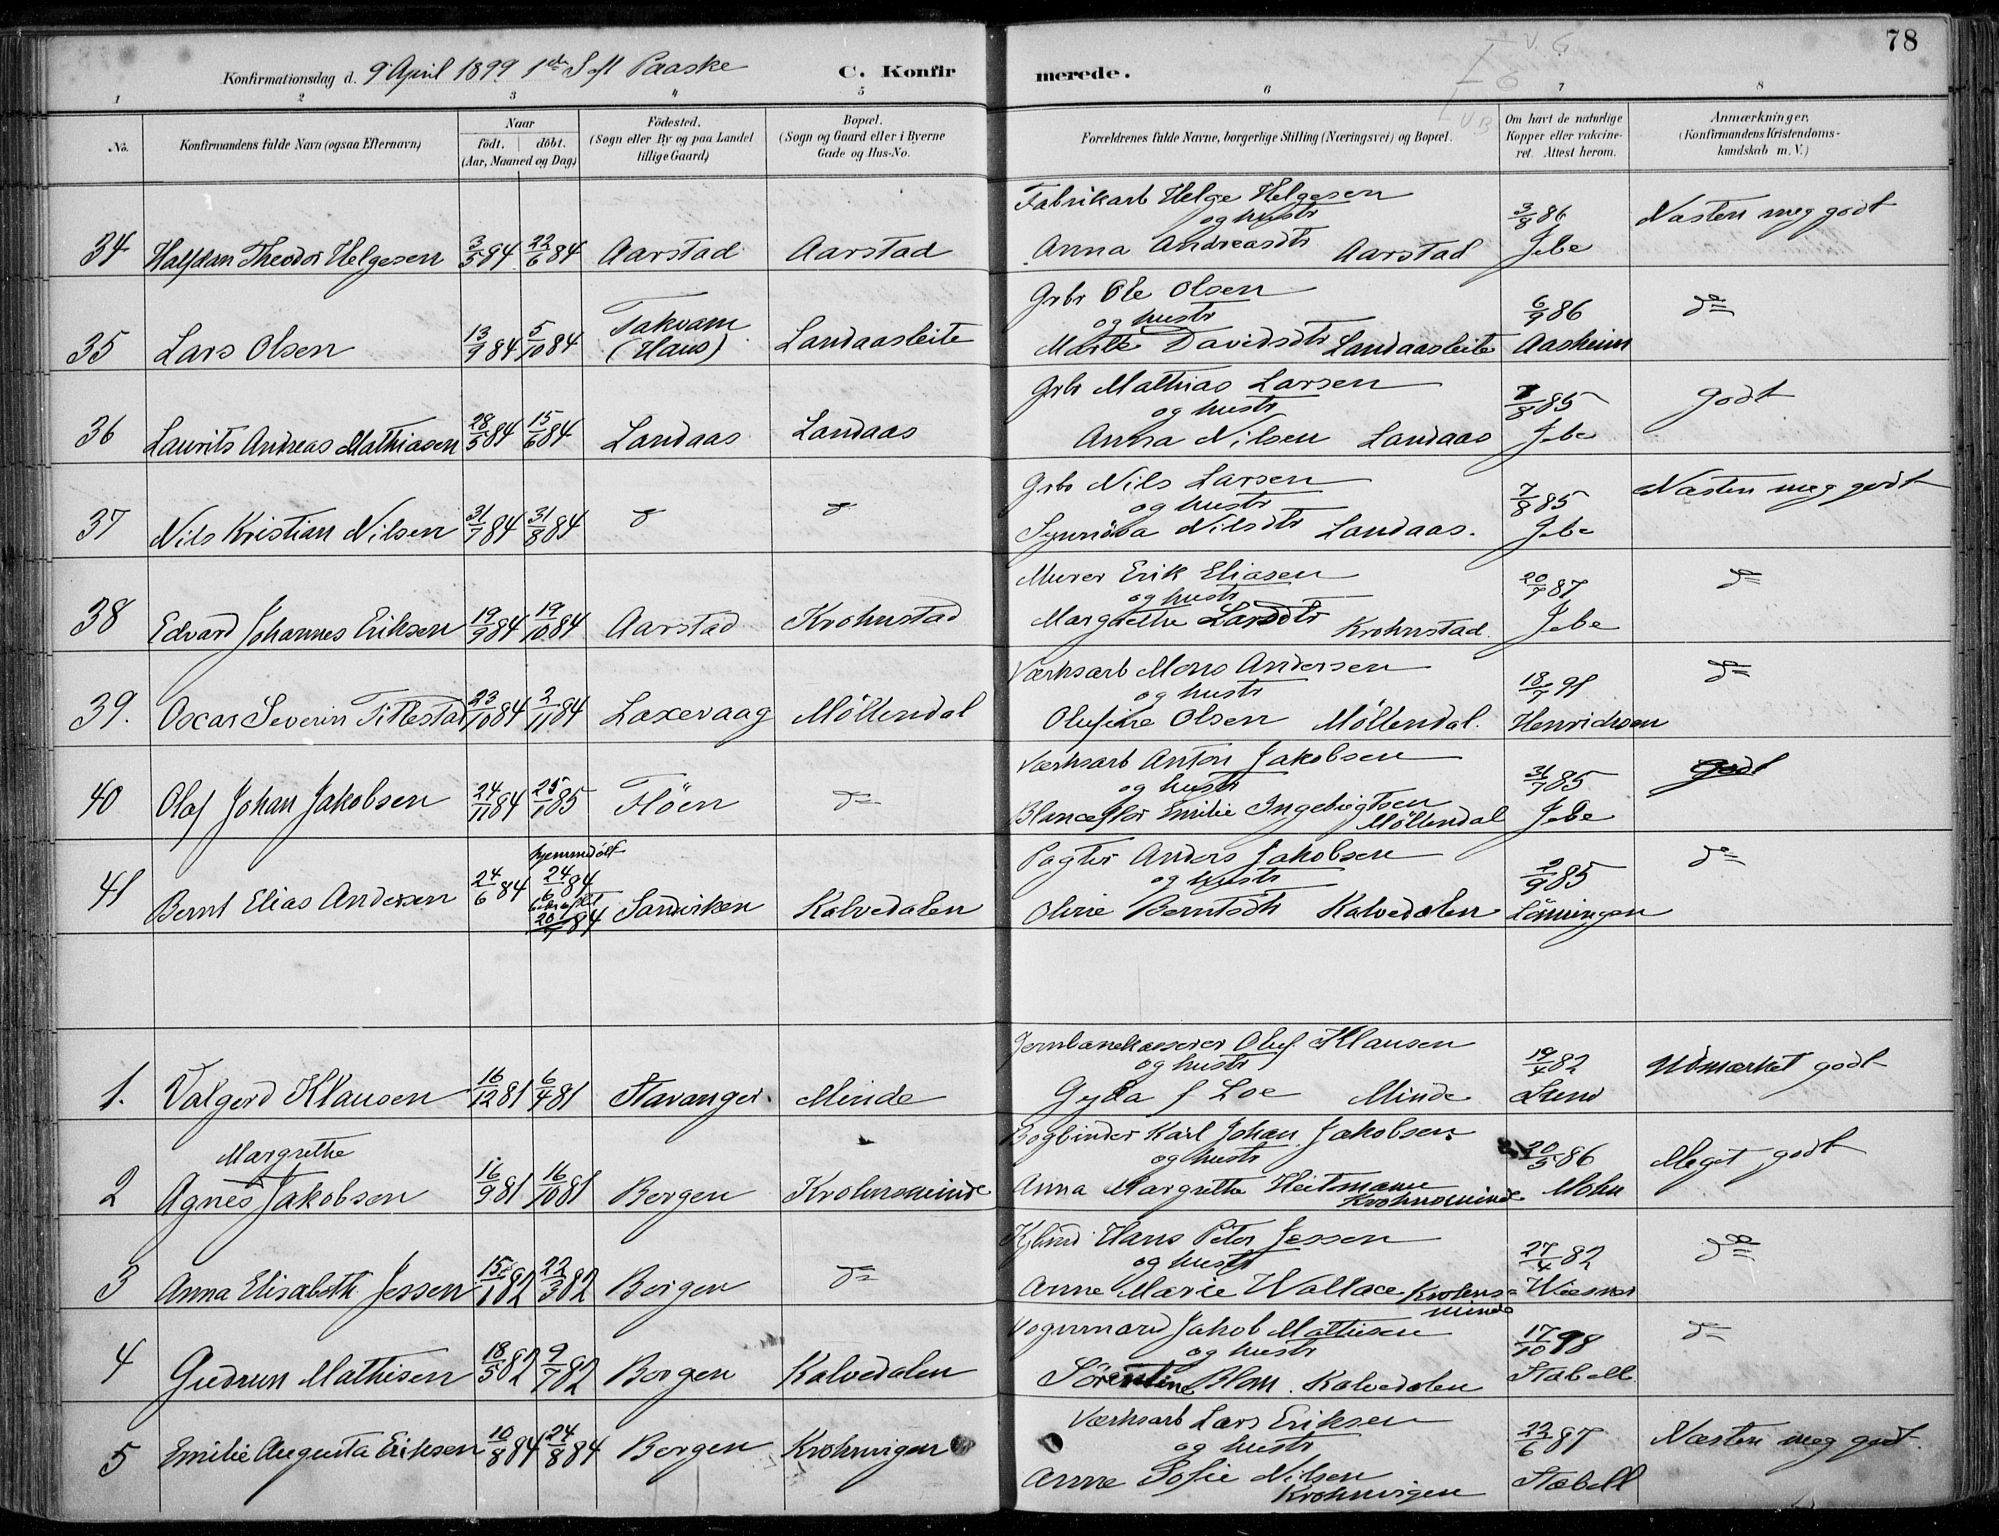 78
Konfirmationsdag d. 9 April 1899 1ste S. eft Paaske
C. Konfirmerede.
1 2 3 4 5 6 7 8
No.
Konfirmandens fulde Navn (ogsaa Efternavn)
Naar
födt. döbt.
(Aar, Maaned og Dag)
Födested.
(Sogn eller By og paa Landet tillige Gaard)
Bopæl.
(Sogn og Gaard eller i Byerne Gade og Hus-No.
Forældrenes fulde Navne, borgerlige Stilling (Næringsvei) og Bopæl.
Om havt de naturlige Kopper eller vakcineret. Attest herom.
Anmærkninger.
(Konfirmandens Kristendomskundskab m. V.)
34 Halfdan Theodor Helgesen 3/5 84 22/6 84 Aarstad Aarstad Fabrikarb Helge Helgesen og hustr Anna Andreasdtr Aarstad 3/8 86 Jebe Næsten meg godt
35 Lars Olsen 13/9 84 5/10 84 Takvam (Haus) Landaasleite Grbr Ole Olsen og hustr Marte Davidsdtr Landaasleite 6/9 86 Aasheim do
36 Laurits Andreas Mathiasen 28/5 84 15/6 84 Landaas Landaas Grbr Mathias Larsen og hustr Anna Nilsen Landaas 7/8 85 Jebe godt
37 Nils Kristian Nilsen 31/7 84 31/8 84 do do Grbr Nils Larsen og hustr Synnöva Nilsdtr Landaas. 7/8 85 Jebe Næsten meg godt
38 Edvard Johannes Eriksen 19/9 84 19/10 84 Aarstad Krohnstad Murer Erik Eliasen og hustr Margrethe Larsdtr Krohnstad. 20/7 87 Jebe do
39. Oscar Severin Tittestad 23/10 84 2/11 84 Laxevaag Möllendal Værksarb Mons Andersen og hustr Olufine Olsen Möllendal. 18/7 91 Henrichsen do
40 Olaf Johan Jakobsen 24/11 84 25/1 85 Flöen do Værksarb Anton Jakobsen og hustr Blanceflor Emilie Ingebrigtsen Möllendal 31/7 85 Jebe godt
41 Bernt Elias Andersen 24/6 84 hjemmedöbt 24/6 84 20/7 84 Sandviken Kalvedalen Pagter Anders Jakobsen og hustr Oline Berntsdtr Kalvedalen 2/9 85 Lönningen do
1. Valgerd Klausen 16/12 81 6/4 81 Stavanger. Minde Jernbanekasserer Oluf Klausen og hustr Gyda f Loe Minde 19/4 82 Lund Udmærket godt
2 Agnes Margrethe Jakobsen 16/9 81 16/10 81 Bergen Krohnsminde Bogbinder Karl Johan Jakobsen og hustr Anna Margrethe Heitmann Krohnsminde 20/5 86 Mohn Meget godt
3 Anna Elisabeth Jessen 15/1 82 22/3 82 Bergen do Hans Peter Jessen og hustr Anne Marie Wallace Krohnsminde 27/4 82 Wiesner do
4 Gudrun Mathisen 18/5 82 9/7 82 Bergen Kalvedalen Vognmand Jakob Mathisen og hustr Sörentine Blom. Kalvedalen 17/10 98 Stabell. do
5 Emilie Augusta Eriksen 10/8 84 24/8 84 Bergen Krohnvigen Værksarb Lars Eriksen og hustr Anne Sofie Nilsen Krohnvigen 22/6 87 Stabell Næsten meg godt.